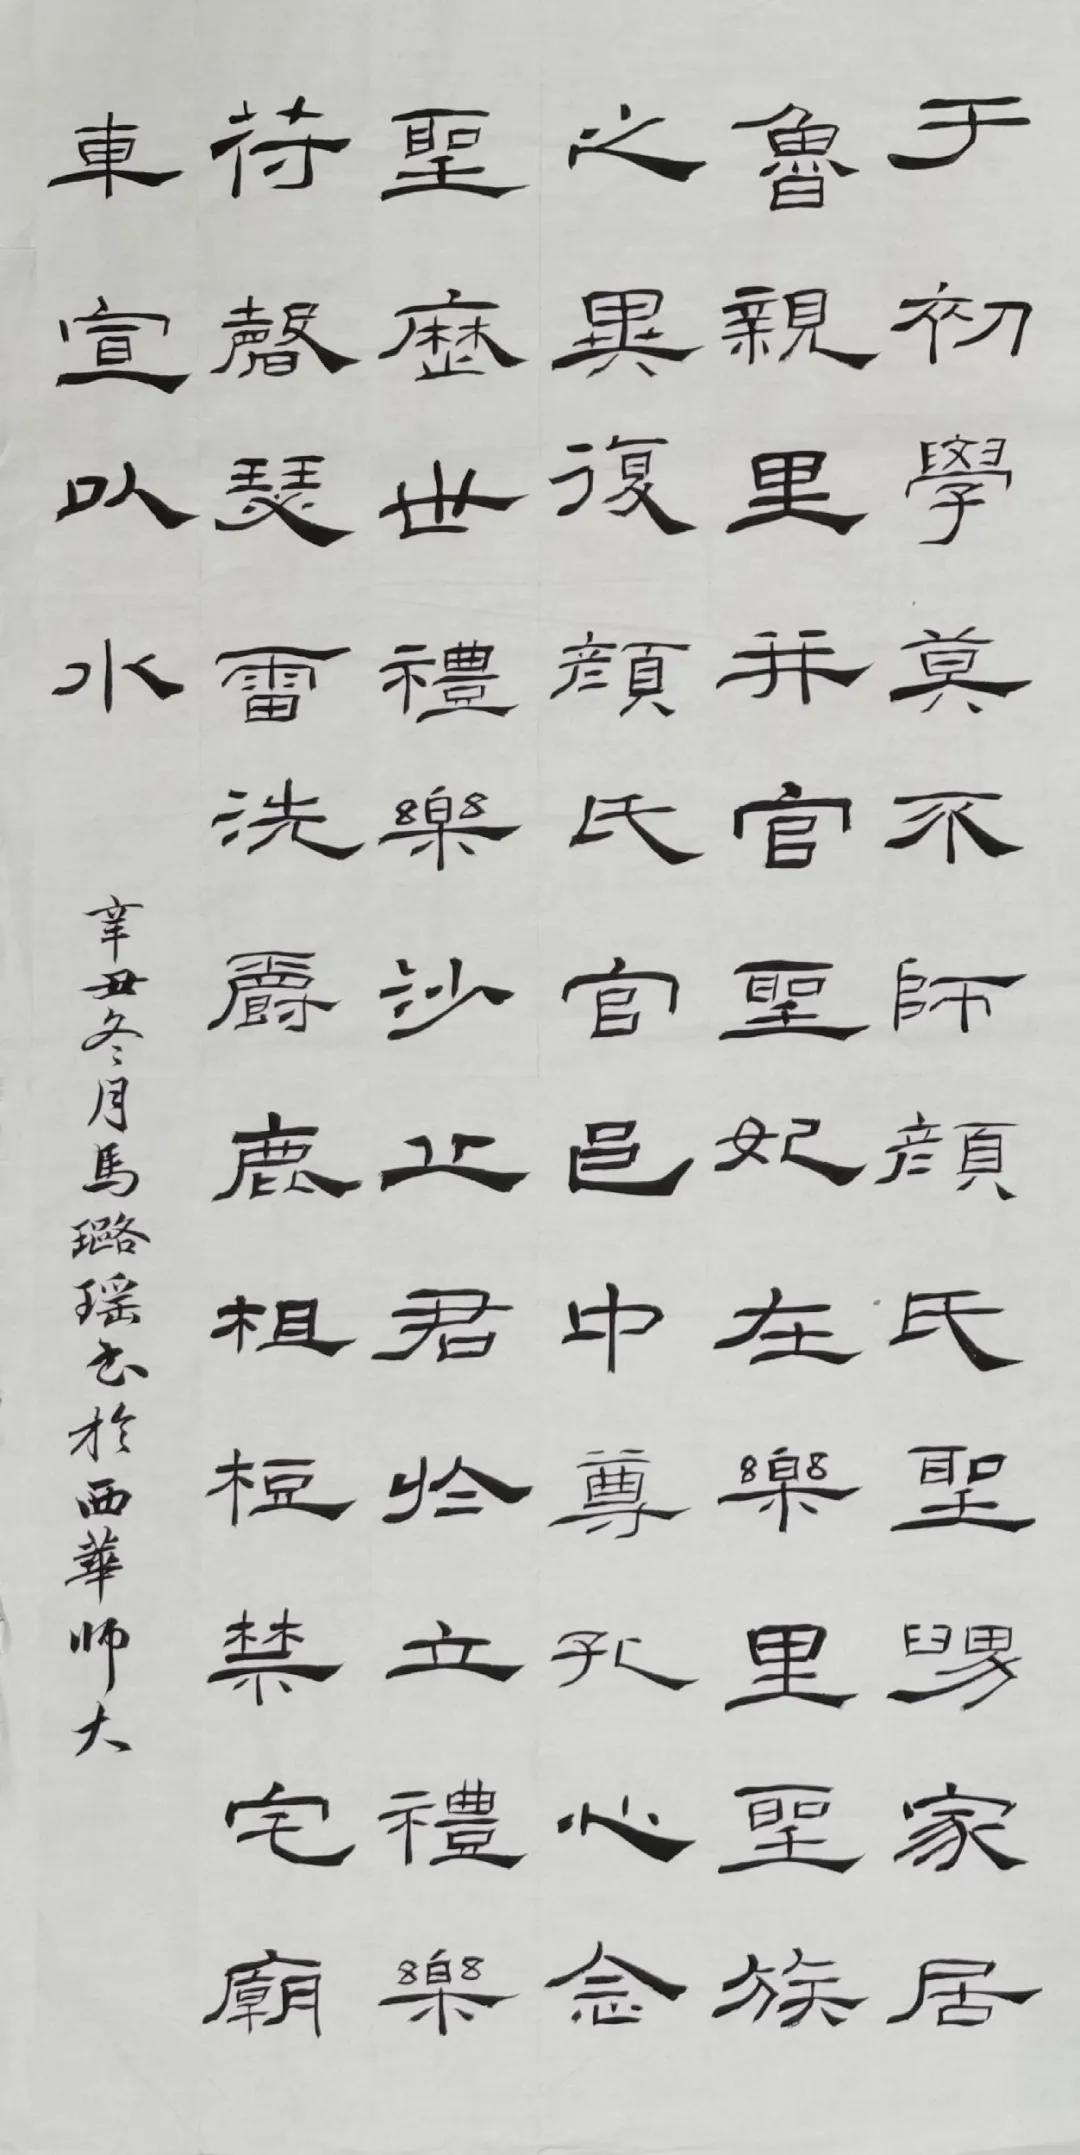 于初學莫不師顏氏聖舅家居
魯親里并官聖妃在樂里聖族
之異復顏氏官邑中尊孔心念
聖歷世禮樂沙止君於立禮樂
符磬瑟雷洗爵鹿柤梪禁宅廟
車宣以水
辛丑冬月馬璐瑶書於西華师大